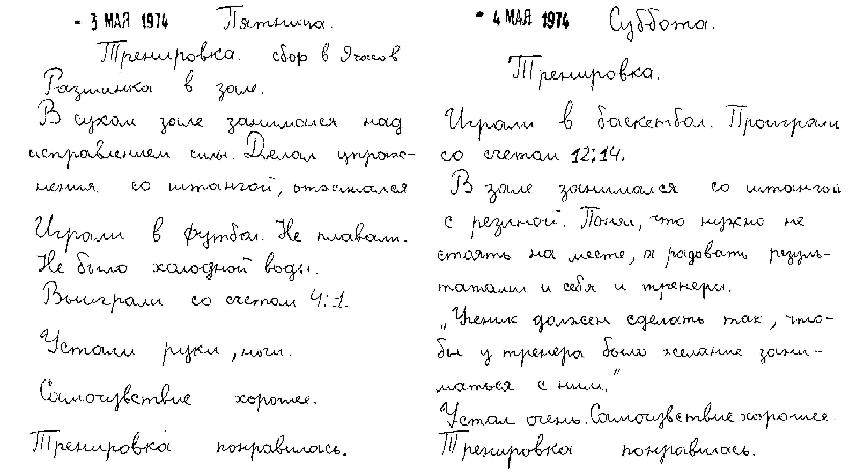 - 3 МАЯ 1974 Пятница.
Тренировка. сбор в 9 часов
Разминка в зале.
В сухом зале занимался над
исправлением силы. Делал упраж-
нения со штангой, отжимался
Играли в футбол. Не плавали.
Не было холодной воды.
Выиграли со счетом 4:1.
Устали руки, ноги.
Самочувствие хорошее.
Тренировка понравилась.
- 4 МАЯ 1974 Суббота.
Тренировка.
Играли в баскетбол. Проиграли
со счетом 12:14.
В зале занимался со штангой
с резиной. Понял, что нужно не
стоять на месте, а радовать резуль-
татами и себя и тренера.
„Ученик должен сделать так, что-
бы у тренера было желание зани-
маться с ним.”
Устал очень. Самочувствие хорошее
Тренировка понравилась.